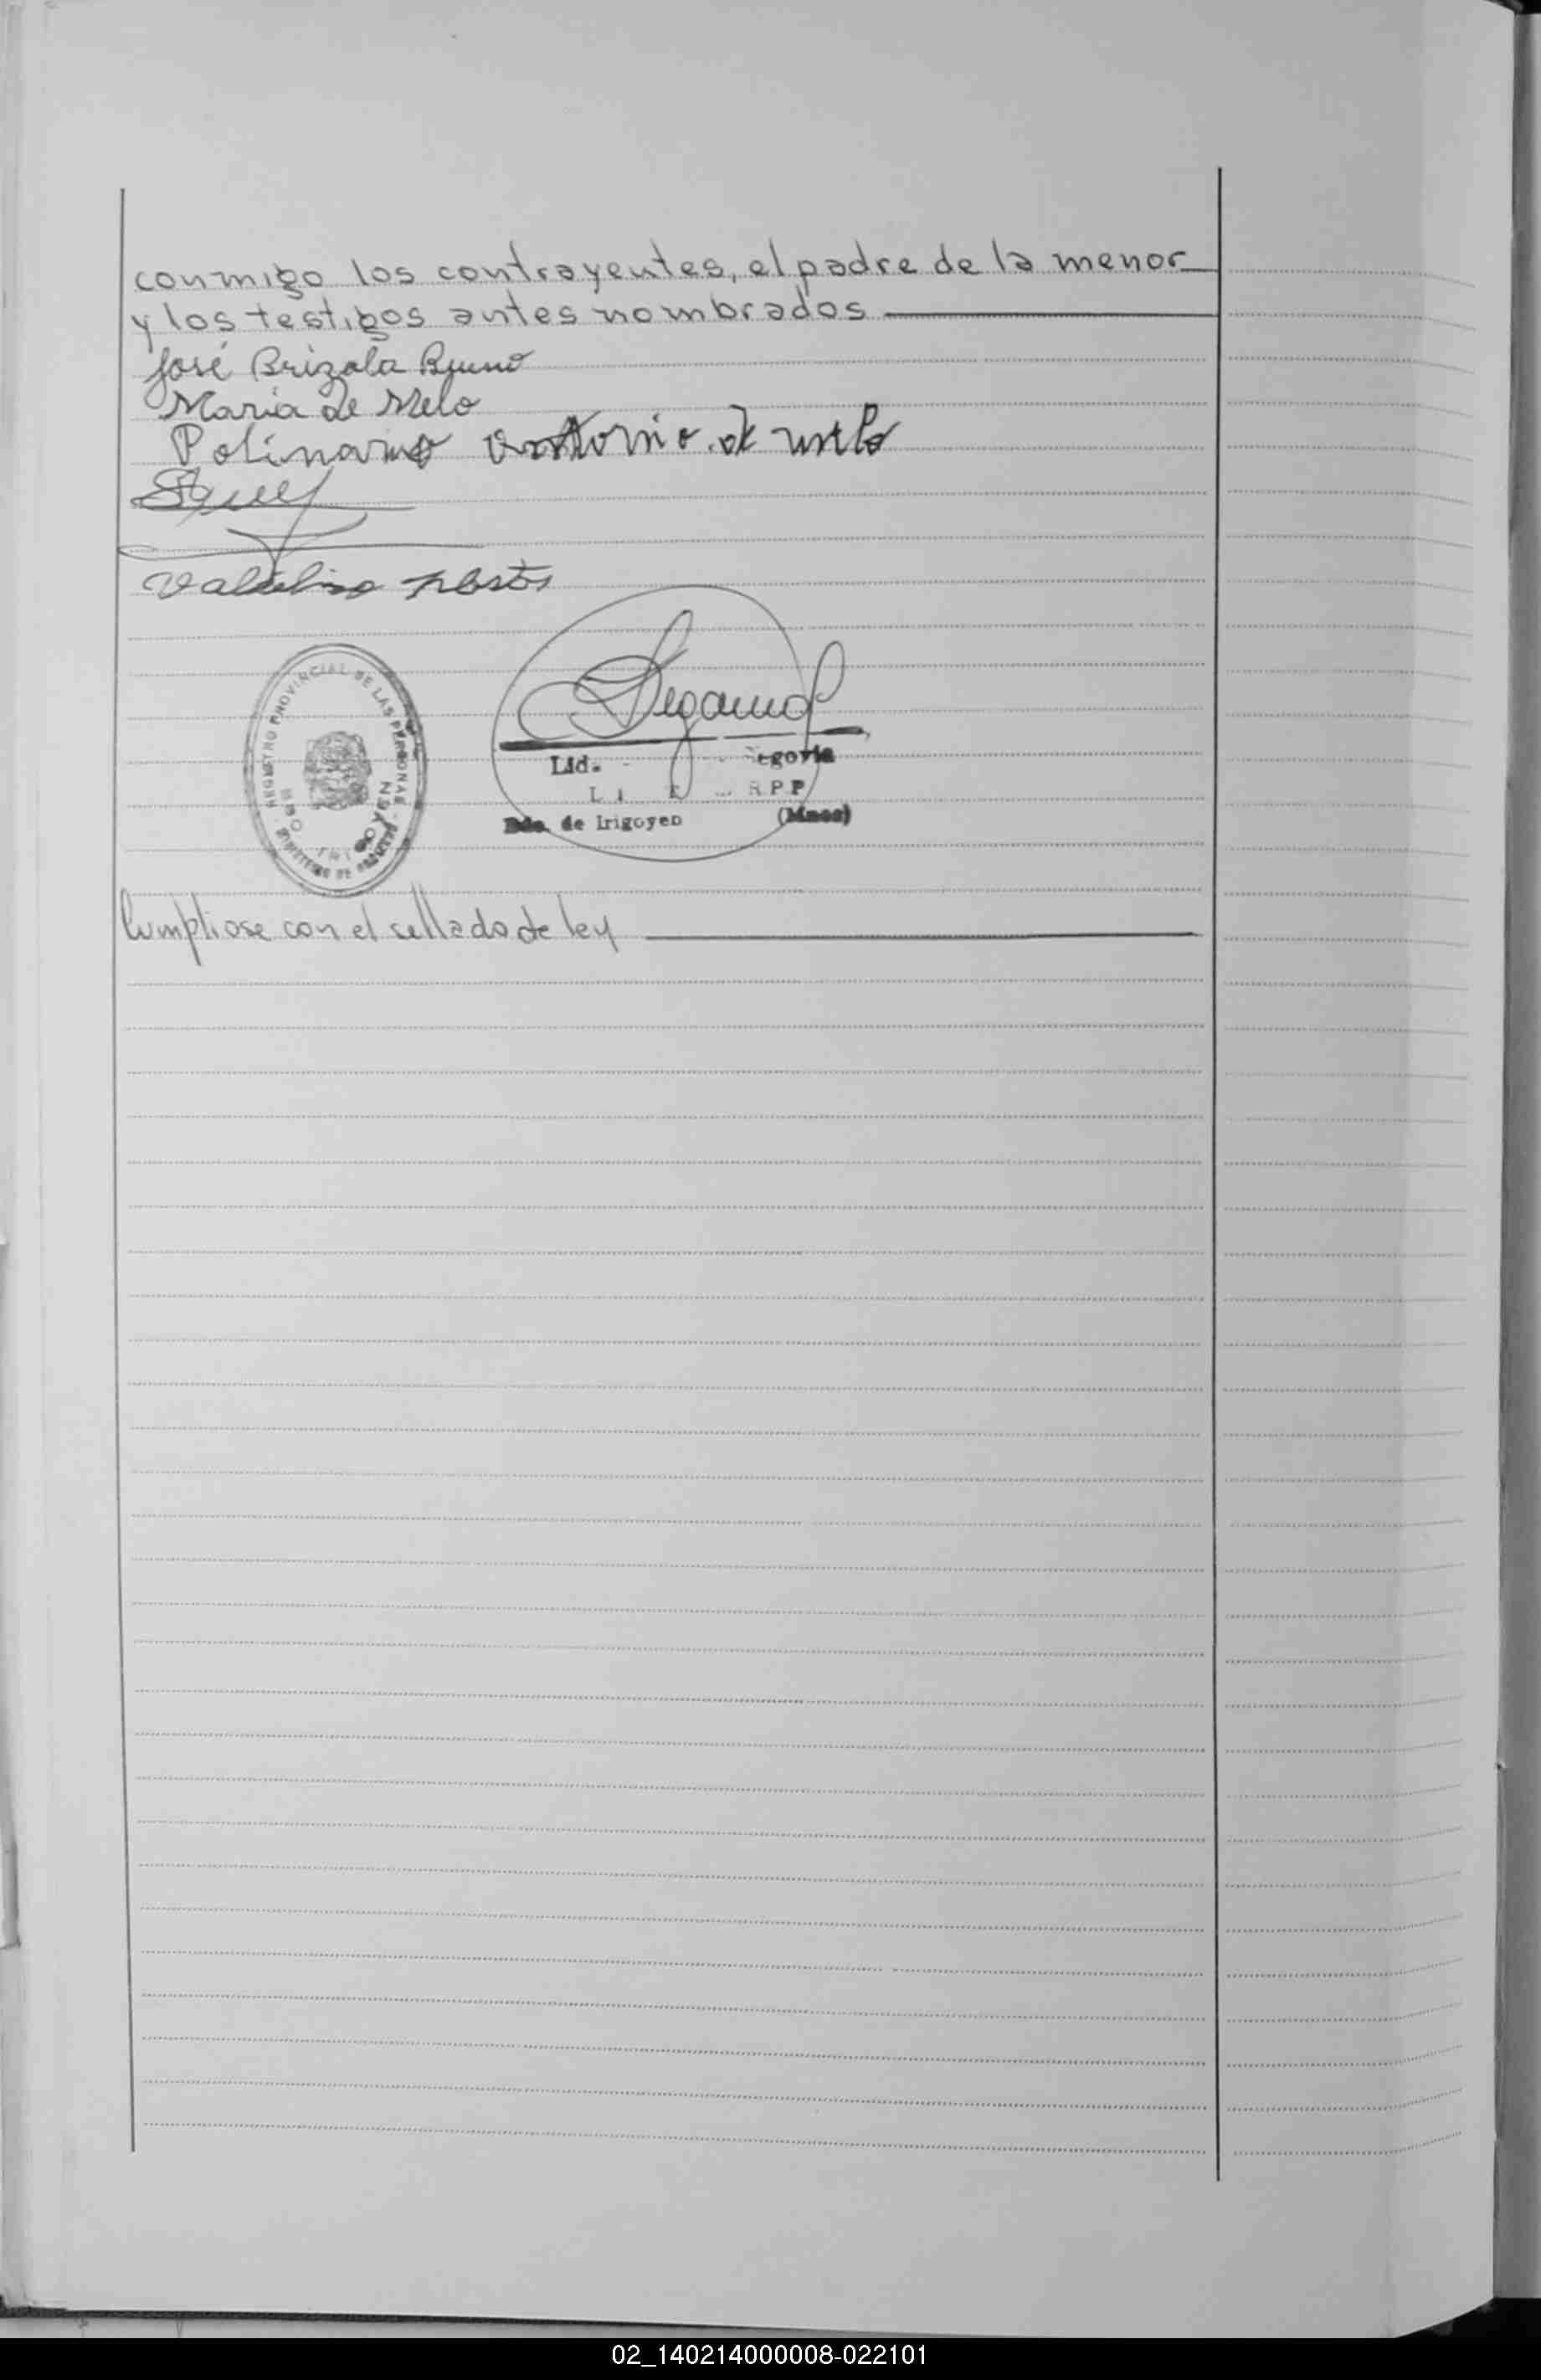 conmigo los contrayentes, el padre de la menor
y los testigos antes nombrados
José Brizola Bruno
Maria de Melo
Polinario Antonio de melo
REGISTRO PROVINCIAL DE LAS PERSONAS
IRIGOYEN
Lid. Segovia
R.P.P
Bdo. de Irigoyen (Mnes)
Cumpliose con el sellado de ley
02_140214000008-022101